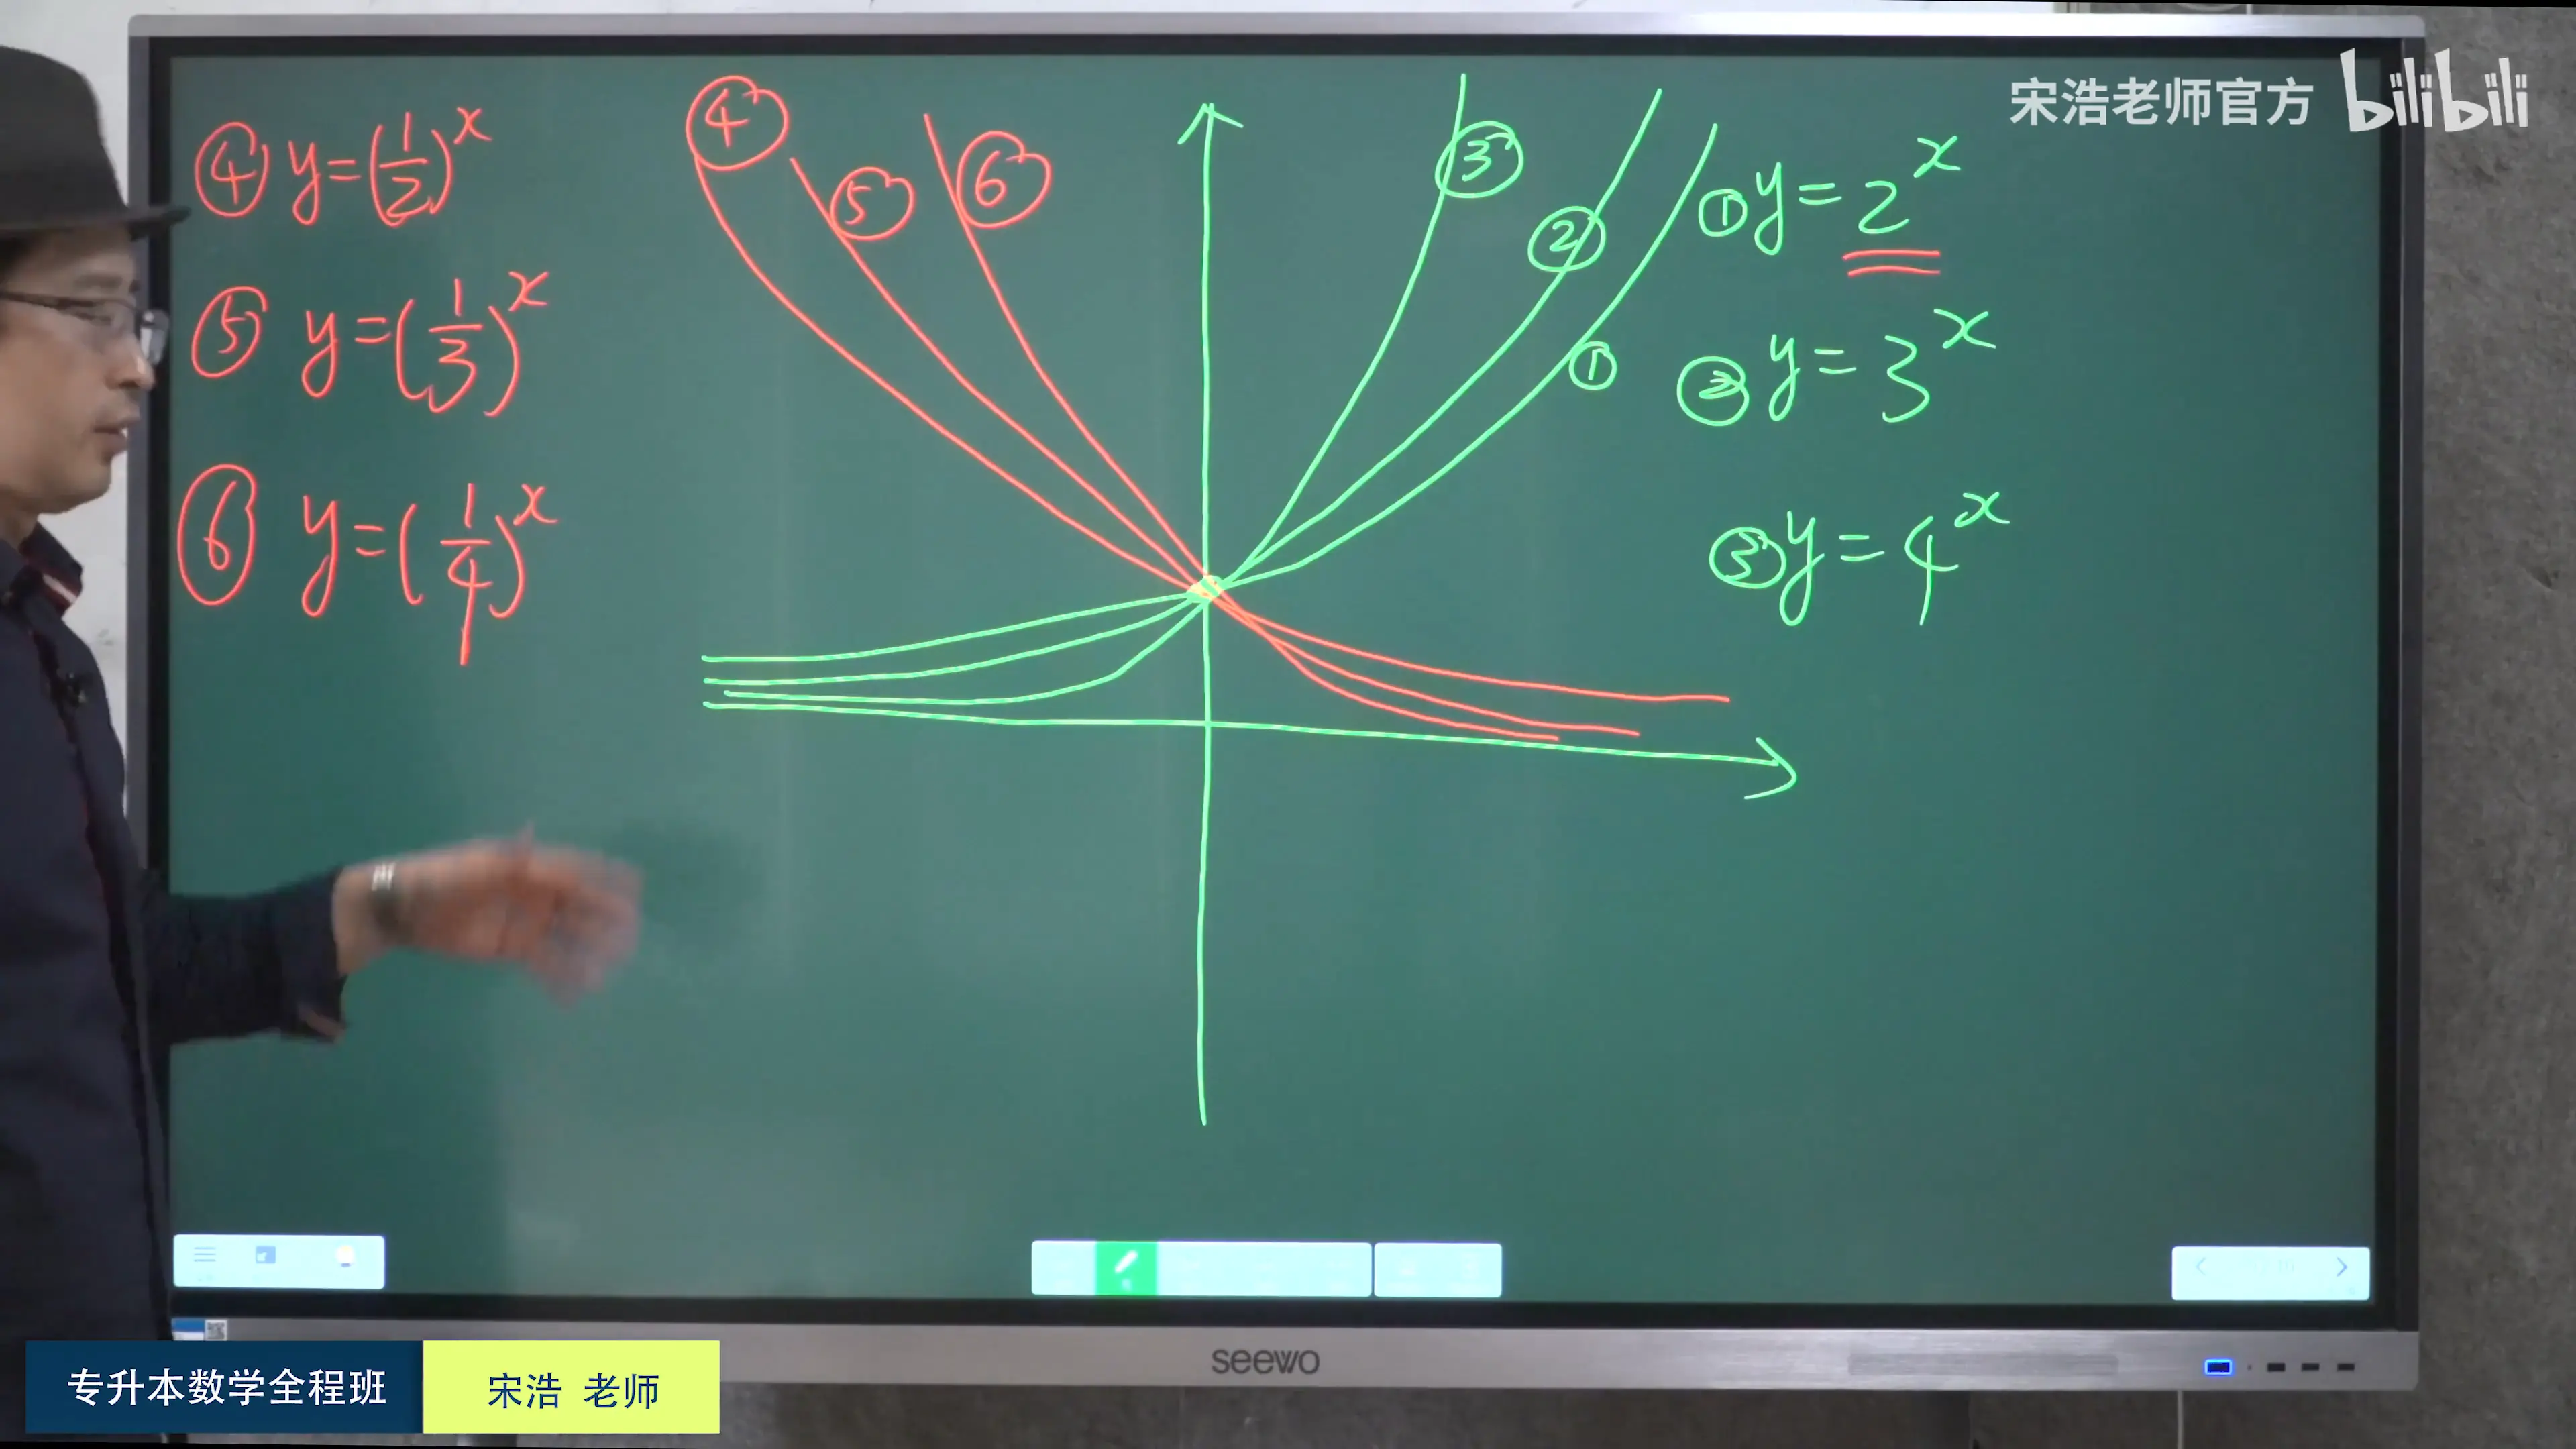 宋浩老师官方 bilibili
④ y=(1/2)^x
⑤ y=(1/3)^x
⑥ y=(1/4)^x
④
⑤
⑥
③
②
①
① y=2^x
② y=3^x
③ y=4^x
seewo
专升本数学全程班
宋浩 老师